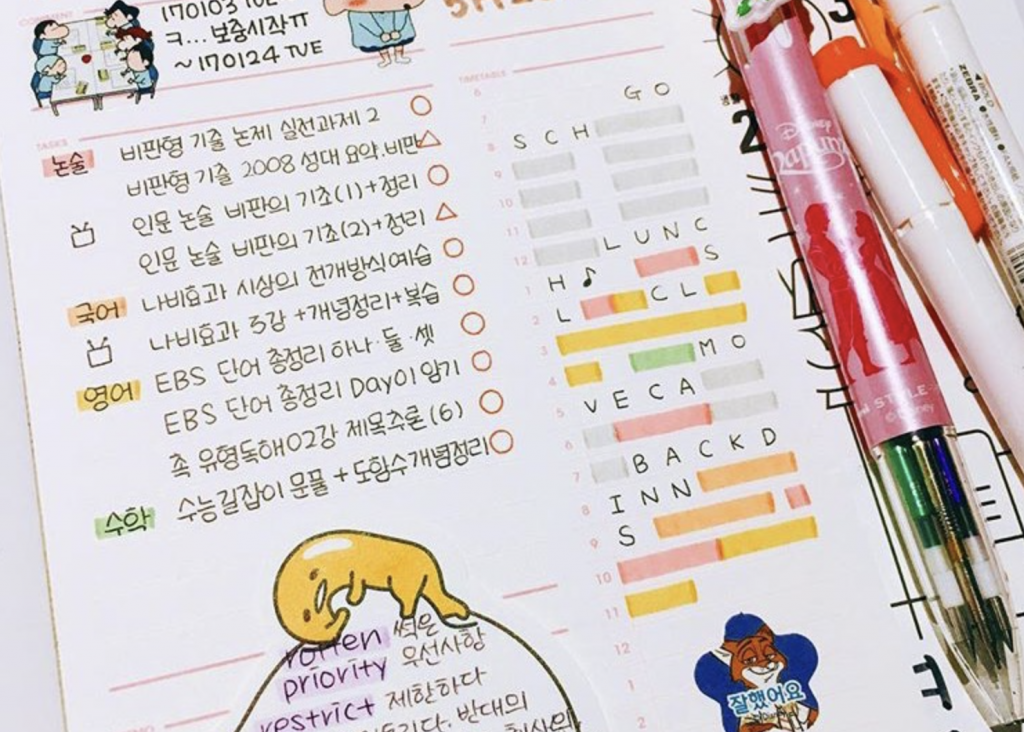 COMMENT
170103 TUE
ㅋ...보충시작ㅠ
~170124 TUE
TASKS
논술
비판형 기출 논제 실전과제 2
비판형 기출 2008 성대 요약.비판
인문 논술 비판의 기초(1)+정리
인문 논술 비판의 기초(2)+정리
국어
나비효과 시상의 전개방식예습
나비효과 3강 +개념정리+복습
영어
EBS 단어 총정리 하나·둘·셋
EBS 단어 총정리 Day01암기
촉 유형독해02강 제목추론(6)
수학
수능길잡이 문풀 + 도함수개념정리
rotten 썩은
priority 우선사항
restrict 제한하다
반대의
TIMETABLE
6
7 GO
8 SCH
9
10
11
12 LUNC
1 H♪ S
2 L CL
3
4 MO
5 VECA
6
7 BACKD
8 INN
9 S
10
11
12
1
2
잘했어요
Disney
Rapunzel
STYLE
©Disney
ZEBRA
3
2